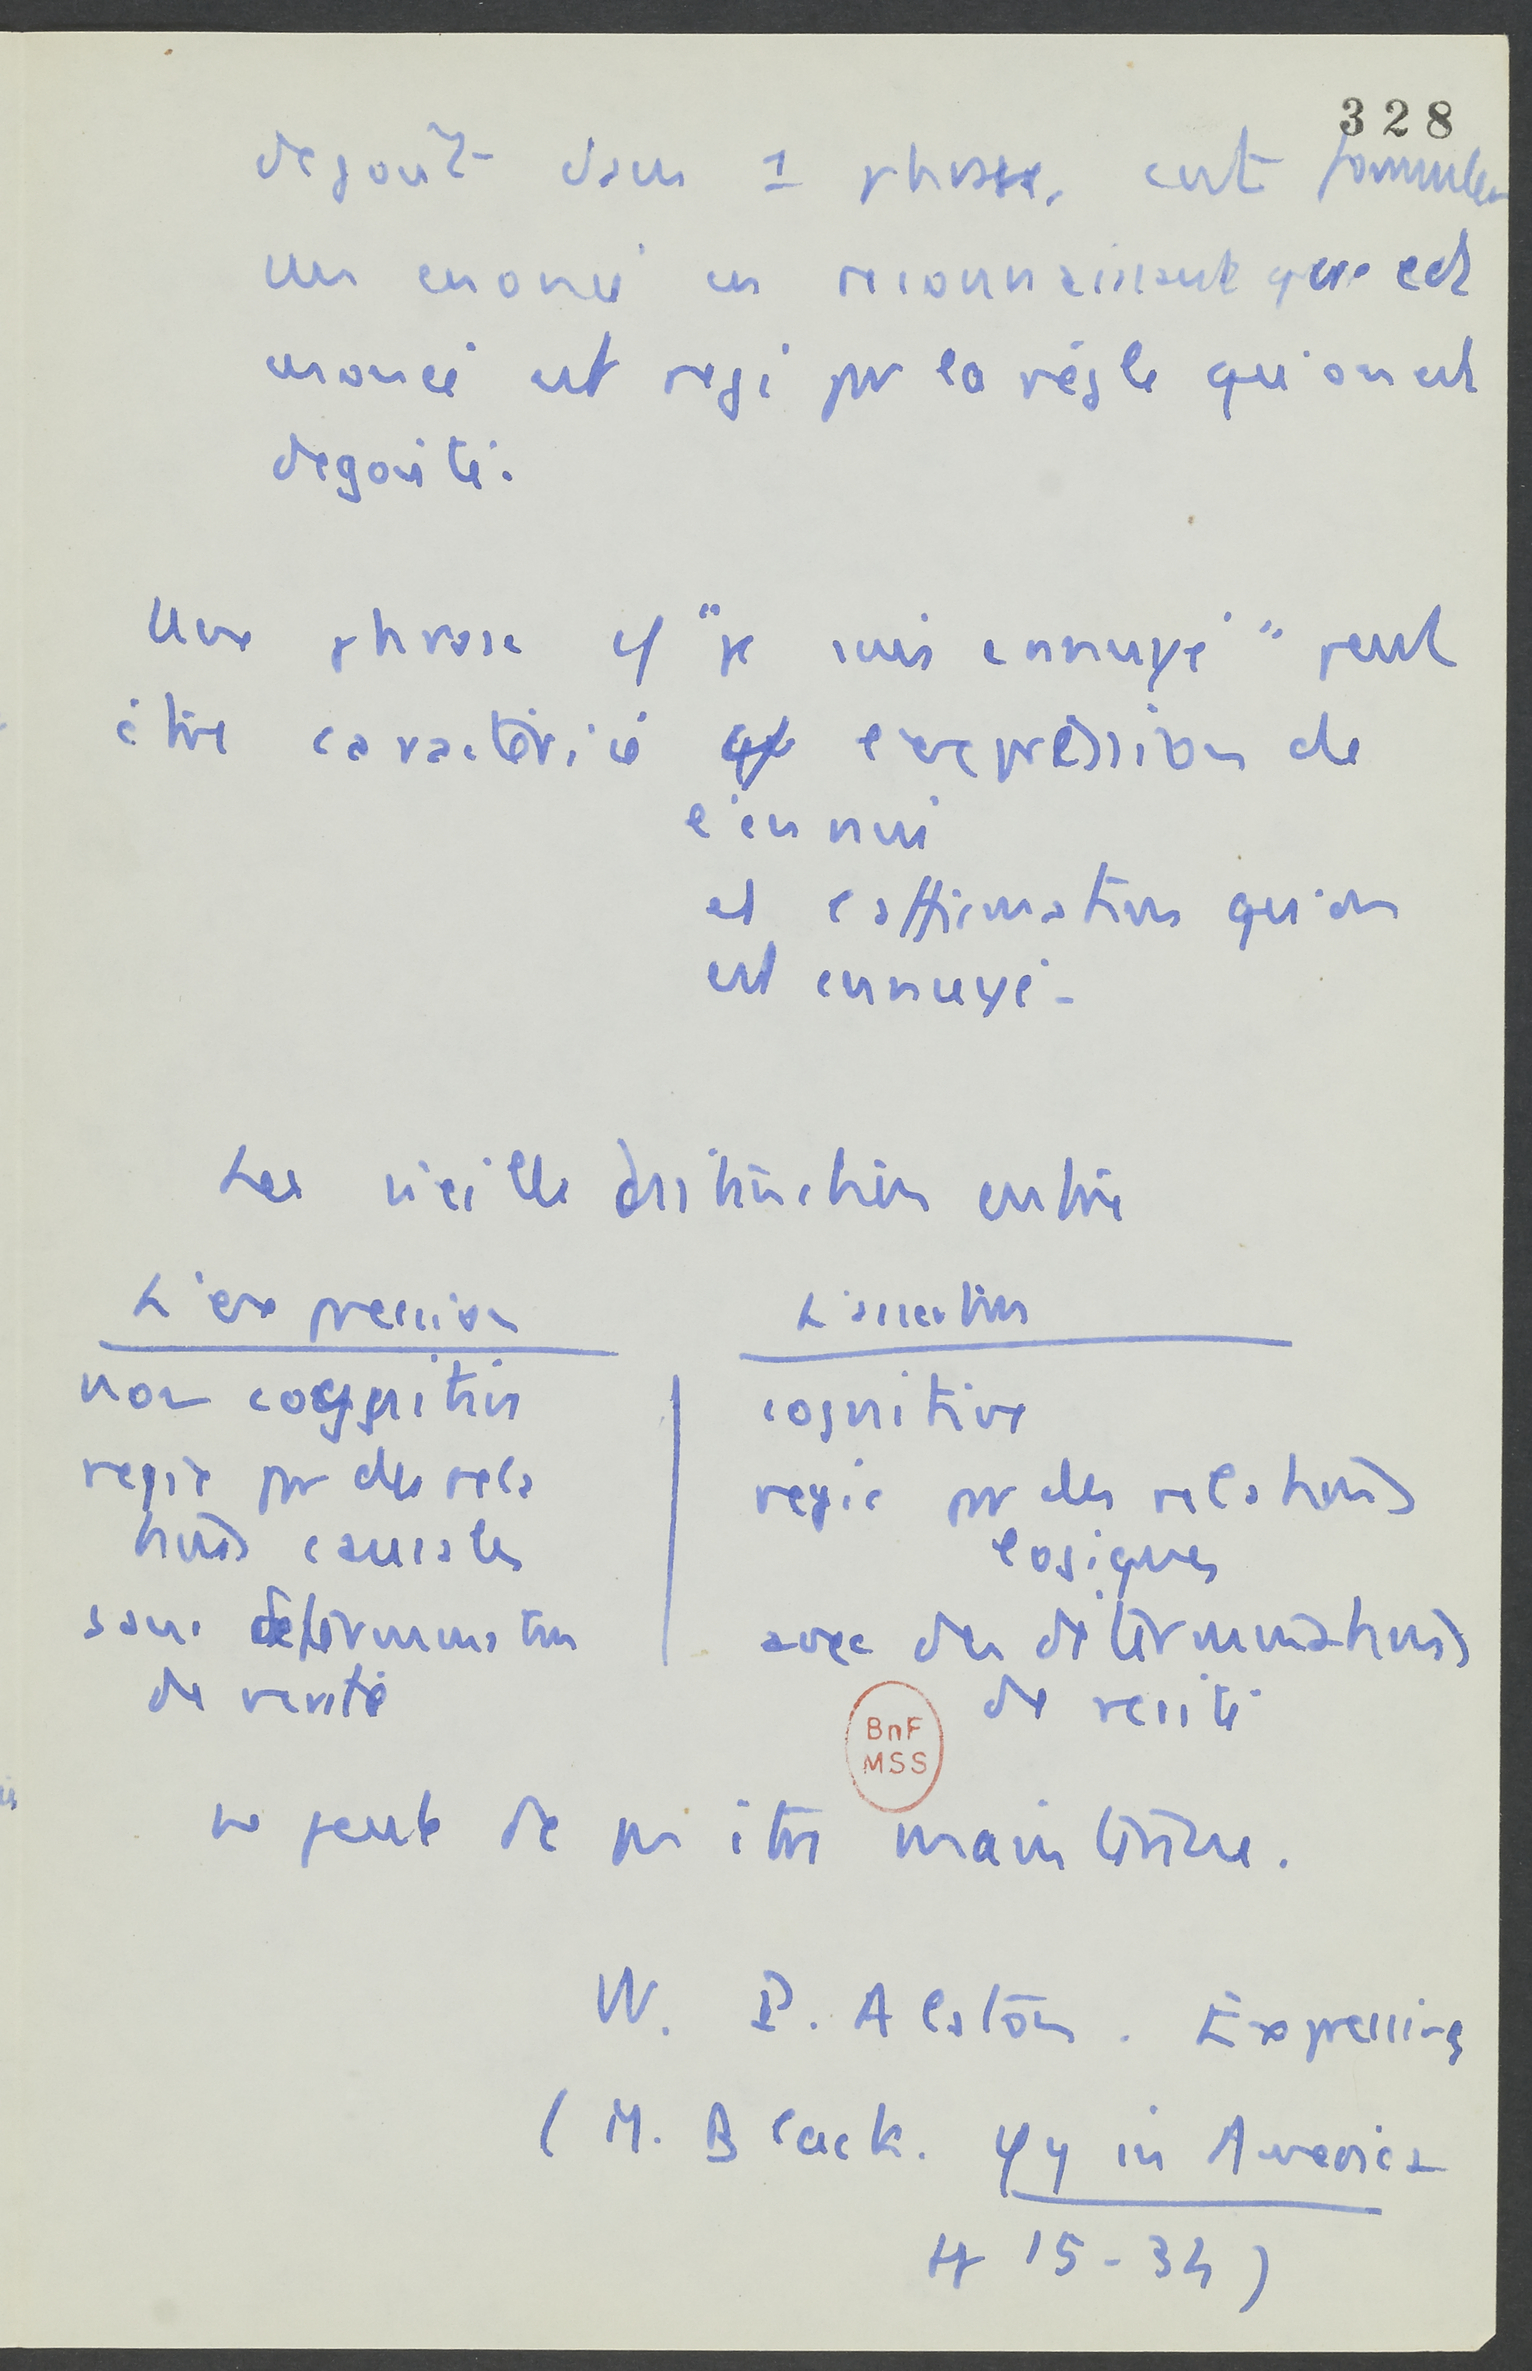 328
degoût dans 1 phrase, c'est formuler
un enoncé en reconnaissant que cet
enoncé est regi par la règle qu'on est
degoûté.
Une phrase cf "je suis ennuyé" peut
être caractérisé expression de
l'ennui
et l'affirmation qu'on
est ennuyé.
La vieille distinction entre
L'expression L'assertion
non cognitive cognitive
regie par des rela regie par des relations
tions causales logiques
sans determination avec des determinations
de verité de verité
ne peut de être maintenue.
W. P. Alston. Expressing
(M. Black. φy in America
15-34)
BnF
MSS